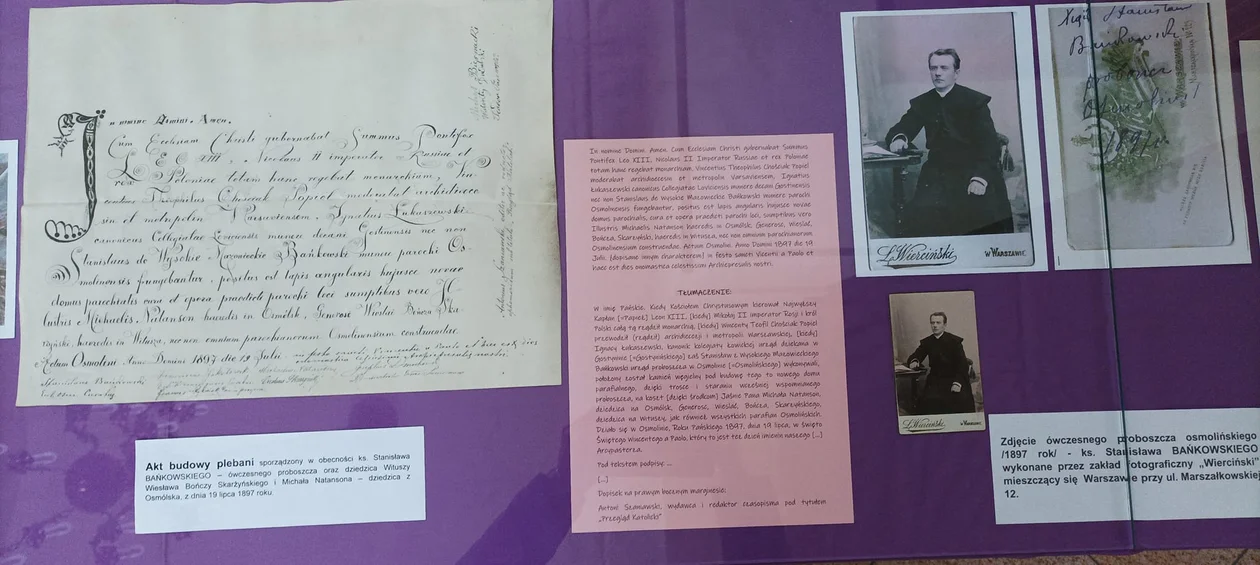 In nomine Domini. Amen.
Cum Ecclesiam Christi gubernabat Summus Pontifex
Leo XIII, Nicolaus II imperator Russiae et
rex Poloniae totam hanc regebat monarchiam, Vin
centius Theophilus Chościak Popiel moderabat archidioece
sin et metropolem Varsaviensem, Ignatius Łukaszewski
canonicus Collegiatae Loviciensis munere decani Gostinensis nec non
Stanislaus de Wysokie Mazowieckie Bańkowski munere parochi Os-
molinensis fungebantur, positus est lapis angularis hujusce novae
domus parochialis cura et opera praedicti parochi loci sumptibus vero Il-
lustris Michaelis Natanson haeredis in Osmólsk, Generose Wieslai Bończa Ska-
rzyński, haeredis in Witusza, nec non omnium parochianorum Osmolinensium construendae.
Actum Osmolini Anno Domini 1897 die 19 Julii
Akt budowy plebani sporządzony w obecności ks. Stanisława
BAŃKOWSKIEGO – ówczesnego proboszcza oraz dziedzica Wituszy
Wiesława Bończy Skarżyńskiego i Michała Natansona – dziedzica z
Osmólska, z dnia 19 lipca 1897 roku.
In nomine Domini. Amen. Cum Ecclesiam Christi gubernabat Summus
Pontifex Leo XIII, Nicolaus II Imperator Russiae et rex Poloniae
totam hanc regebat monarchiam, Vincentius Theophilus Chościak Popiel
moderabat archidioecesim et metropolem Varsaviensem, Ignatius
Łukaszewski canonicus Collegiatae Loviciensis munere decani Gostnensis
nec non Stanislaus de Wysokie Mazowieckie Bańkowski munere parochi
Osmolinensis fungebantur, positus est lapis angularis hujusce novae
domus parochialis, cura et opera praedicti parochi loci, sumptibus vero
Illustris Michaelis Natanson haeredis in Osmólsk, Generose, Wieslai,
Bończa, Skarżyński, haeredis in Witusza, nec non omnium parochianorum
Osmolinensium construendae. Actum Osmolini. Anno Domini 1897 die 19
Julii [dopisane innym charakterem] in festo sancti Vicenti a Paulo et
haec est dies onomastica celestissimi Archiepresulis nostri.
TŁUMACZENIE:
W imię Pańskie. Kiedy Kościołem Chrystusowym kierował Najwyższy
Kapłan [=Papież] Leon XIII, [kiedy] Mikołaj II Imperator Rosji i król
Polski całą tą rządził monarchią, [kiedy] Wincenty Teofil Chościak Popiel
przewodził [rządził] archidiecezji i metropolii Warszawskiej, [kiedy]
Ignacy Łukaszewski, kanonik kolegiaty Łowickiej urząd dziekana w
Gostyninie [=Gostynińskiego] zaś Stanisław z Wysokiego Mazowieckiego
Bańkowski urząd proboszcza w Osmolinie [=Osmolińskiego] wykonywali,
położony został kamień węgielny pod budowę tego to nowego domu
parafialnego, dzięki trosce i staraniu wcześniej wspomnianego
proboszcza, na koszt [dzięki środkom] Jaśnie Pana Michała Natanson,
dziedzica na Osmólsk, Generose, Wieslai, Bończa, Skarżyńskiego,
dziedzica na Witusey, jak również wszystkich parafian Osmolińskich.
Działo się w Osmolinie, Roku Pańskiego 1897, dnia 19 lipca, w święto
Świętego Wincentego a Paolo, który to jest też dzień imienin naszego [...]
Arcypasterza.
Pod tekstem podpisy: ...
[...]
Dopisek na prawym bocznym marginesie:
Antoni Szaniawski, wydawca i redaktor czasopisma pod tytułem
„Przegląd Katolicki"
L. Wierciński
w WARSZAWIE.
Ksiądz Stanisław
Bańkowski
proboszcz
Osmolin
1897 r.
L. Wierciński
w WARSZAWIE.
Zdjęcie ówczesnego proboszcza osmolińskiego
/1897 rok/ - ks. Stanisława BAŃKOWSKIEGO
wykonane przez zakład fotograficzny „Wierciński"
mieszczący się Warszawie przy ul. Marszałkowskiej
12.